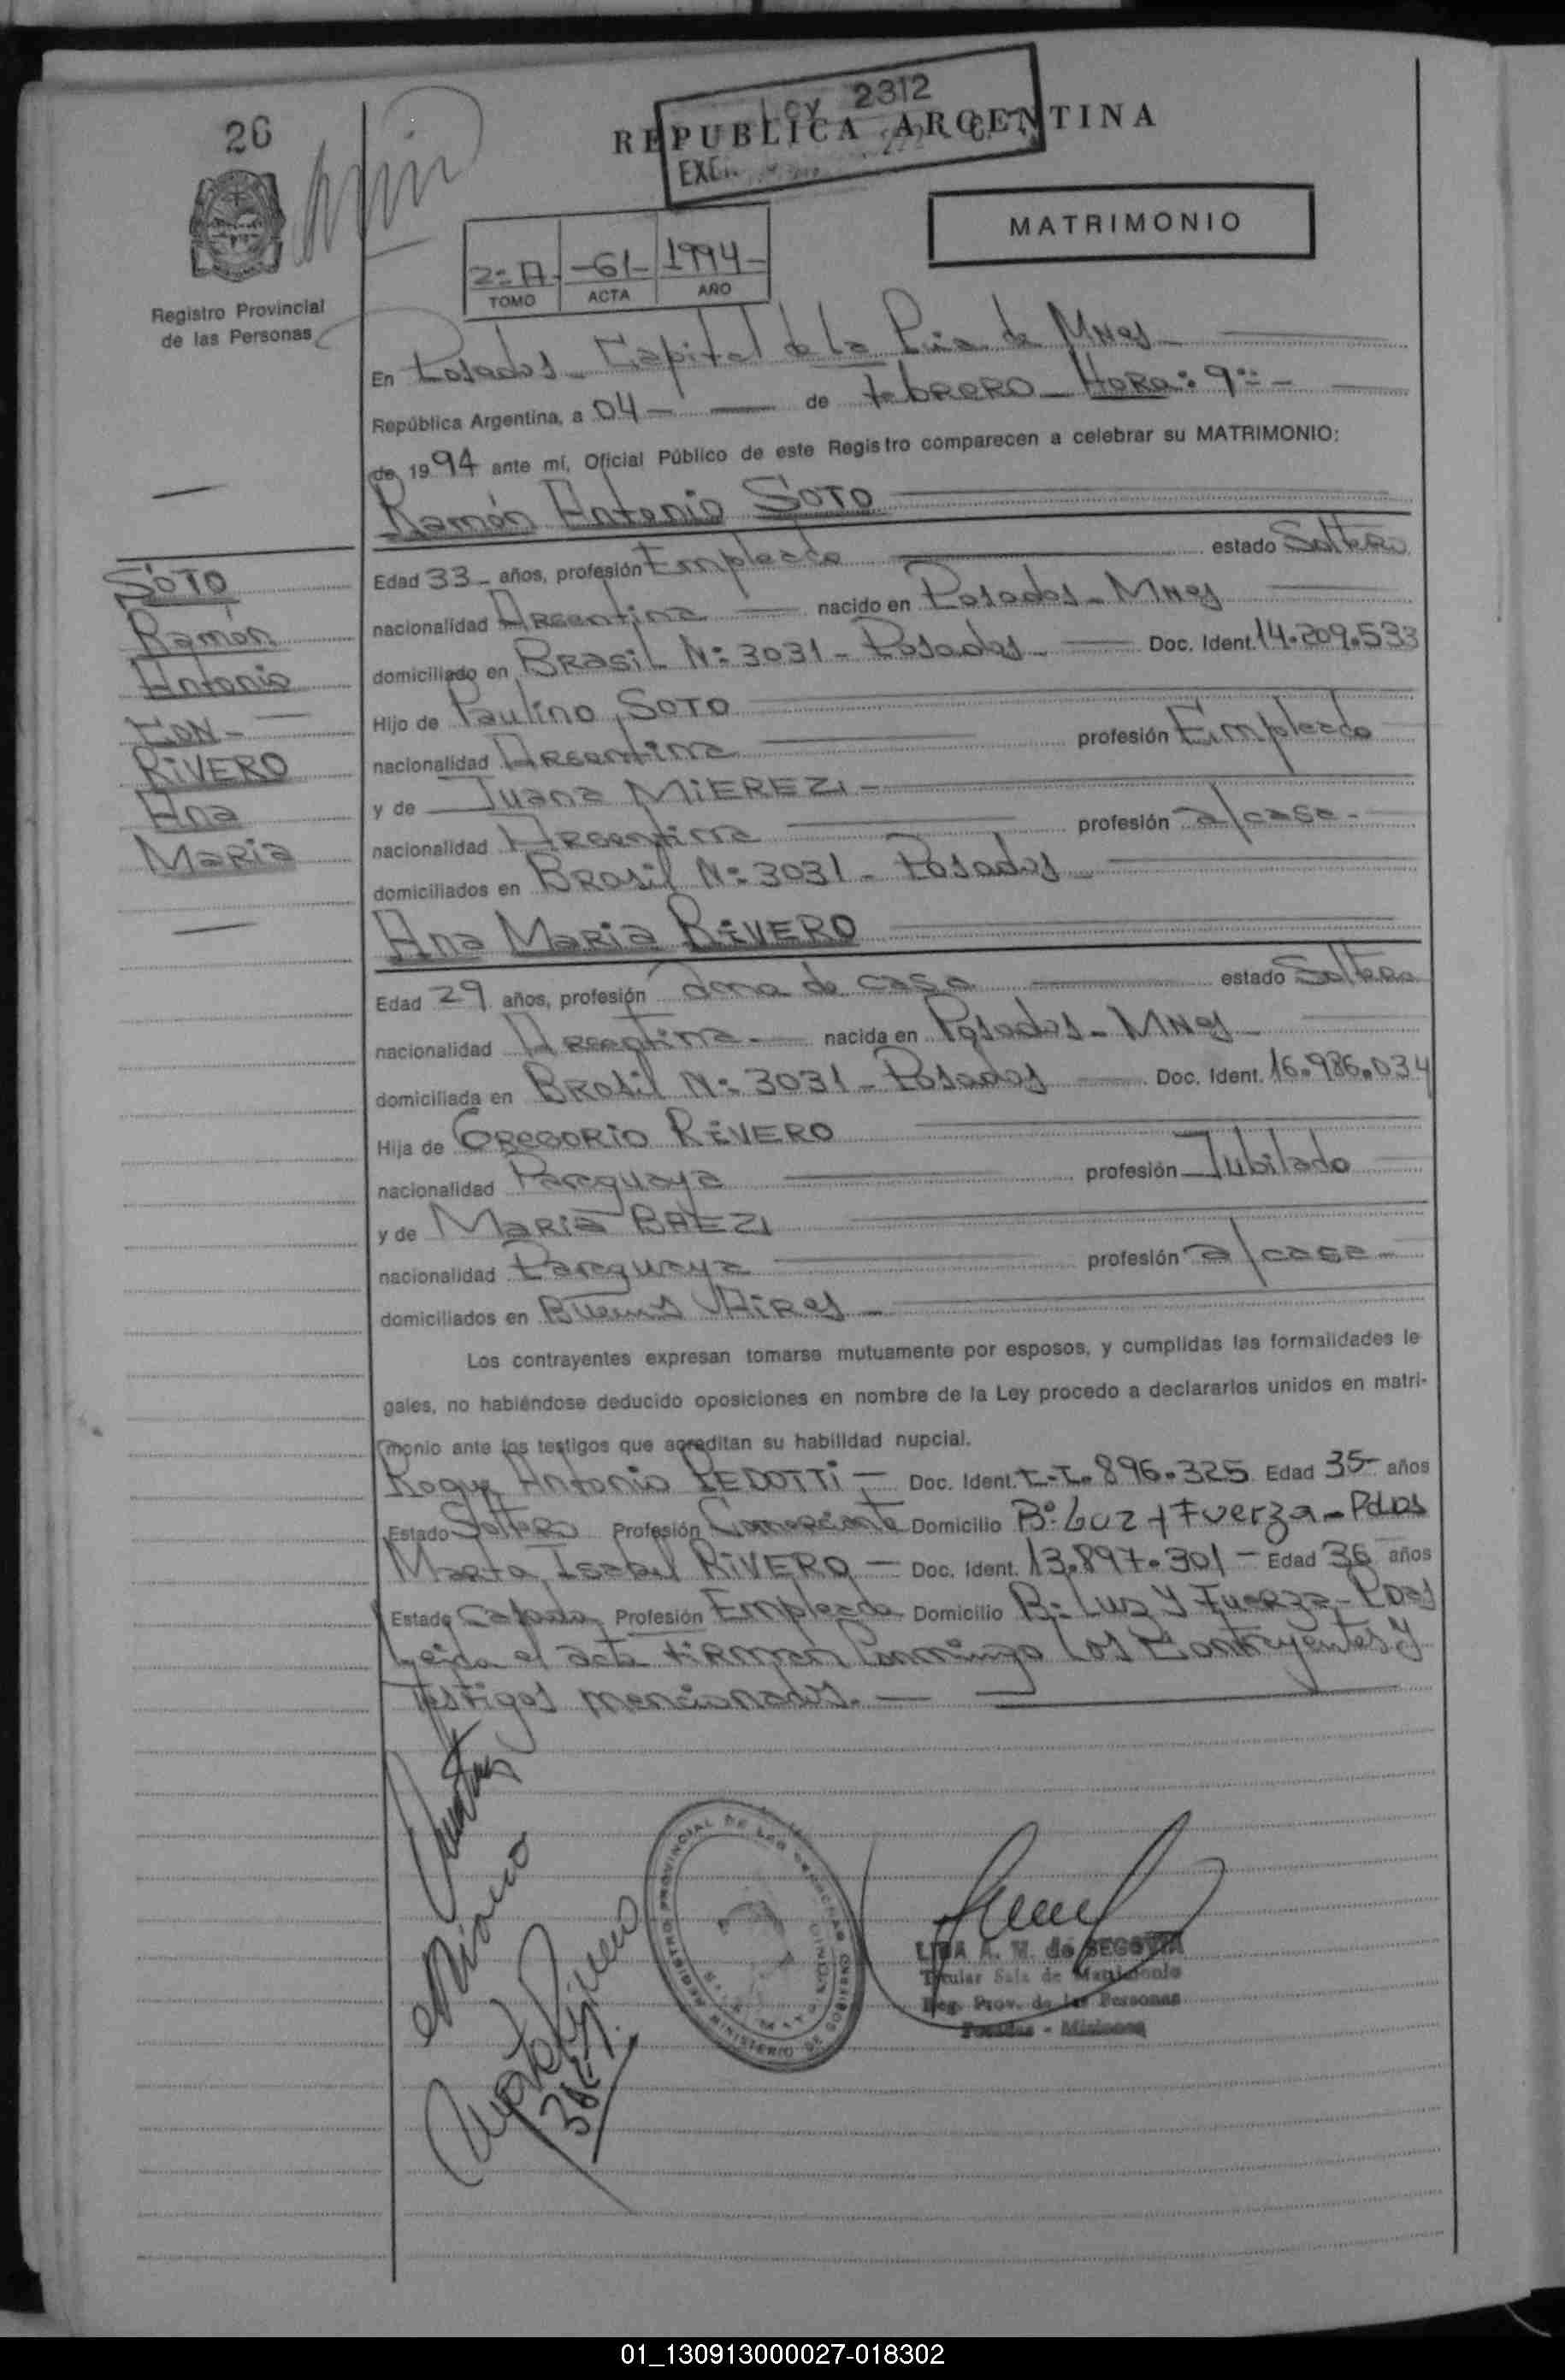 26
Ley 2312
REPUBLICA ARGENTINA
MATRIMONIO
2º A - -61- 1994-
TOMO ACTA AÑO
Registro Provincial
de las Personas
En Posadas - Capital de la Pcia de Mnes
República Argentina, a 04 - de Febrero - Hora: 9
de 1994 ante mí, Oficial Público de este Registro comparecen a celebrar su MATRIMONIO:
Ramón Antonio SOTO
SOTO
Ramón
Antonio
CON -
RIVERO
Ana
Maria
Edad 33 - años, profesión Empleado estado Soltero
nacionalidad Argentina nacido en Posadas - Mnes
domiciliado en Brasil Nº 3031 - Posadas - Doc. Ident. 14.209.533
Hijo de Paulino SOTO
nacionalidad Argentina profesión Empleado
y de Juana MIEREZ -
nacionalidad Argentina profesión a/casa -
domiciliados en Brasil Nº 3031 - Posadas -
Ana Maria RIVERO
Edad 29 años, profesión ama de casa estado Soltera
nacionalidad Argentina - nacida en Posadas - Mnes
domiciliada en Brasil Nº 3031 - Posadas Doc. Ident. 16.986.034
Hija de Gregorio RIVERO
nacionalidad Paraguaya profesión Jubilado
y de Maria BAEZ
nacionalidad Paraguaya profesión a/casa -
domiciliados en Buenos Aires -
Los contrayentes expresan tomarse mutuamente por esposos, y cumplidas las formalidades le-
gales, no habiéndose deducido oposiciones en nombre de la Ley procedo a declararlos unidos en matri-
monio ante los testigos que acreditan su habilidad nupcial.
Roque Antonio PEDOTTI - Doc. Ident. 896.325 Edad 35 años
Estado Soltero Profesión Comerciante Domicilio Bº Luz y Fuerza - Pdas
Marta Isabel RIVERO - Doc. Ident. 13.897.301 - Edad 36 años
Estado Casada Profesión Empleada Domicilio Bº Luz y Fuerza - Pdas
Leida el acta firman conmigo los Contrayentes y
Testigos mencionados. -
REGISTRO PROVINCIAL DE LAS PERSONAS
MINISTERIO DE GOBIERNO
LIDIA A. M. de SEGOVIA
Titular Sala de Matrimonio
Reg. Prov. de las Personas
Posadas - Misiones
01_130913000027-018302